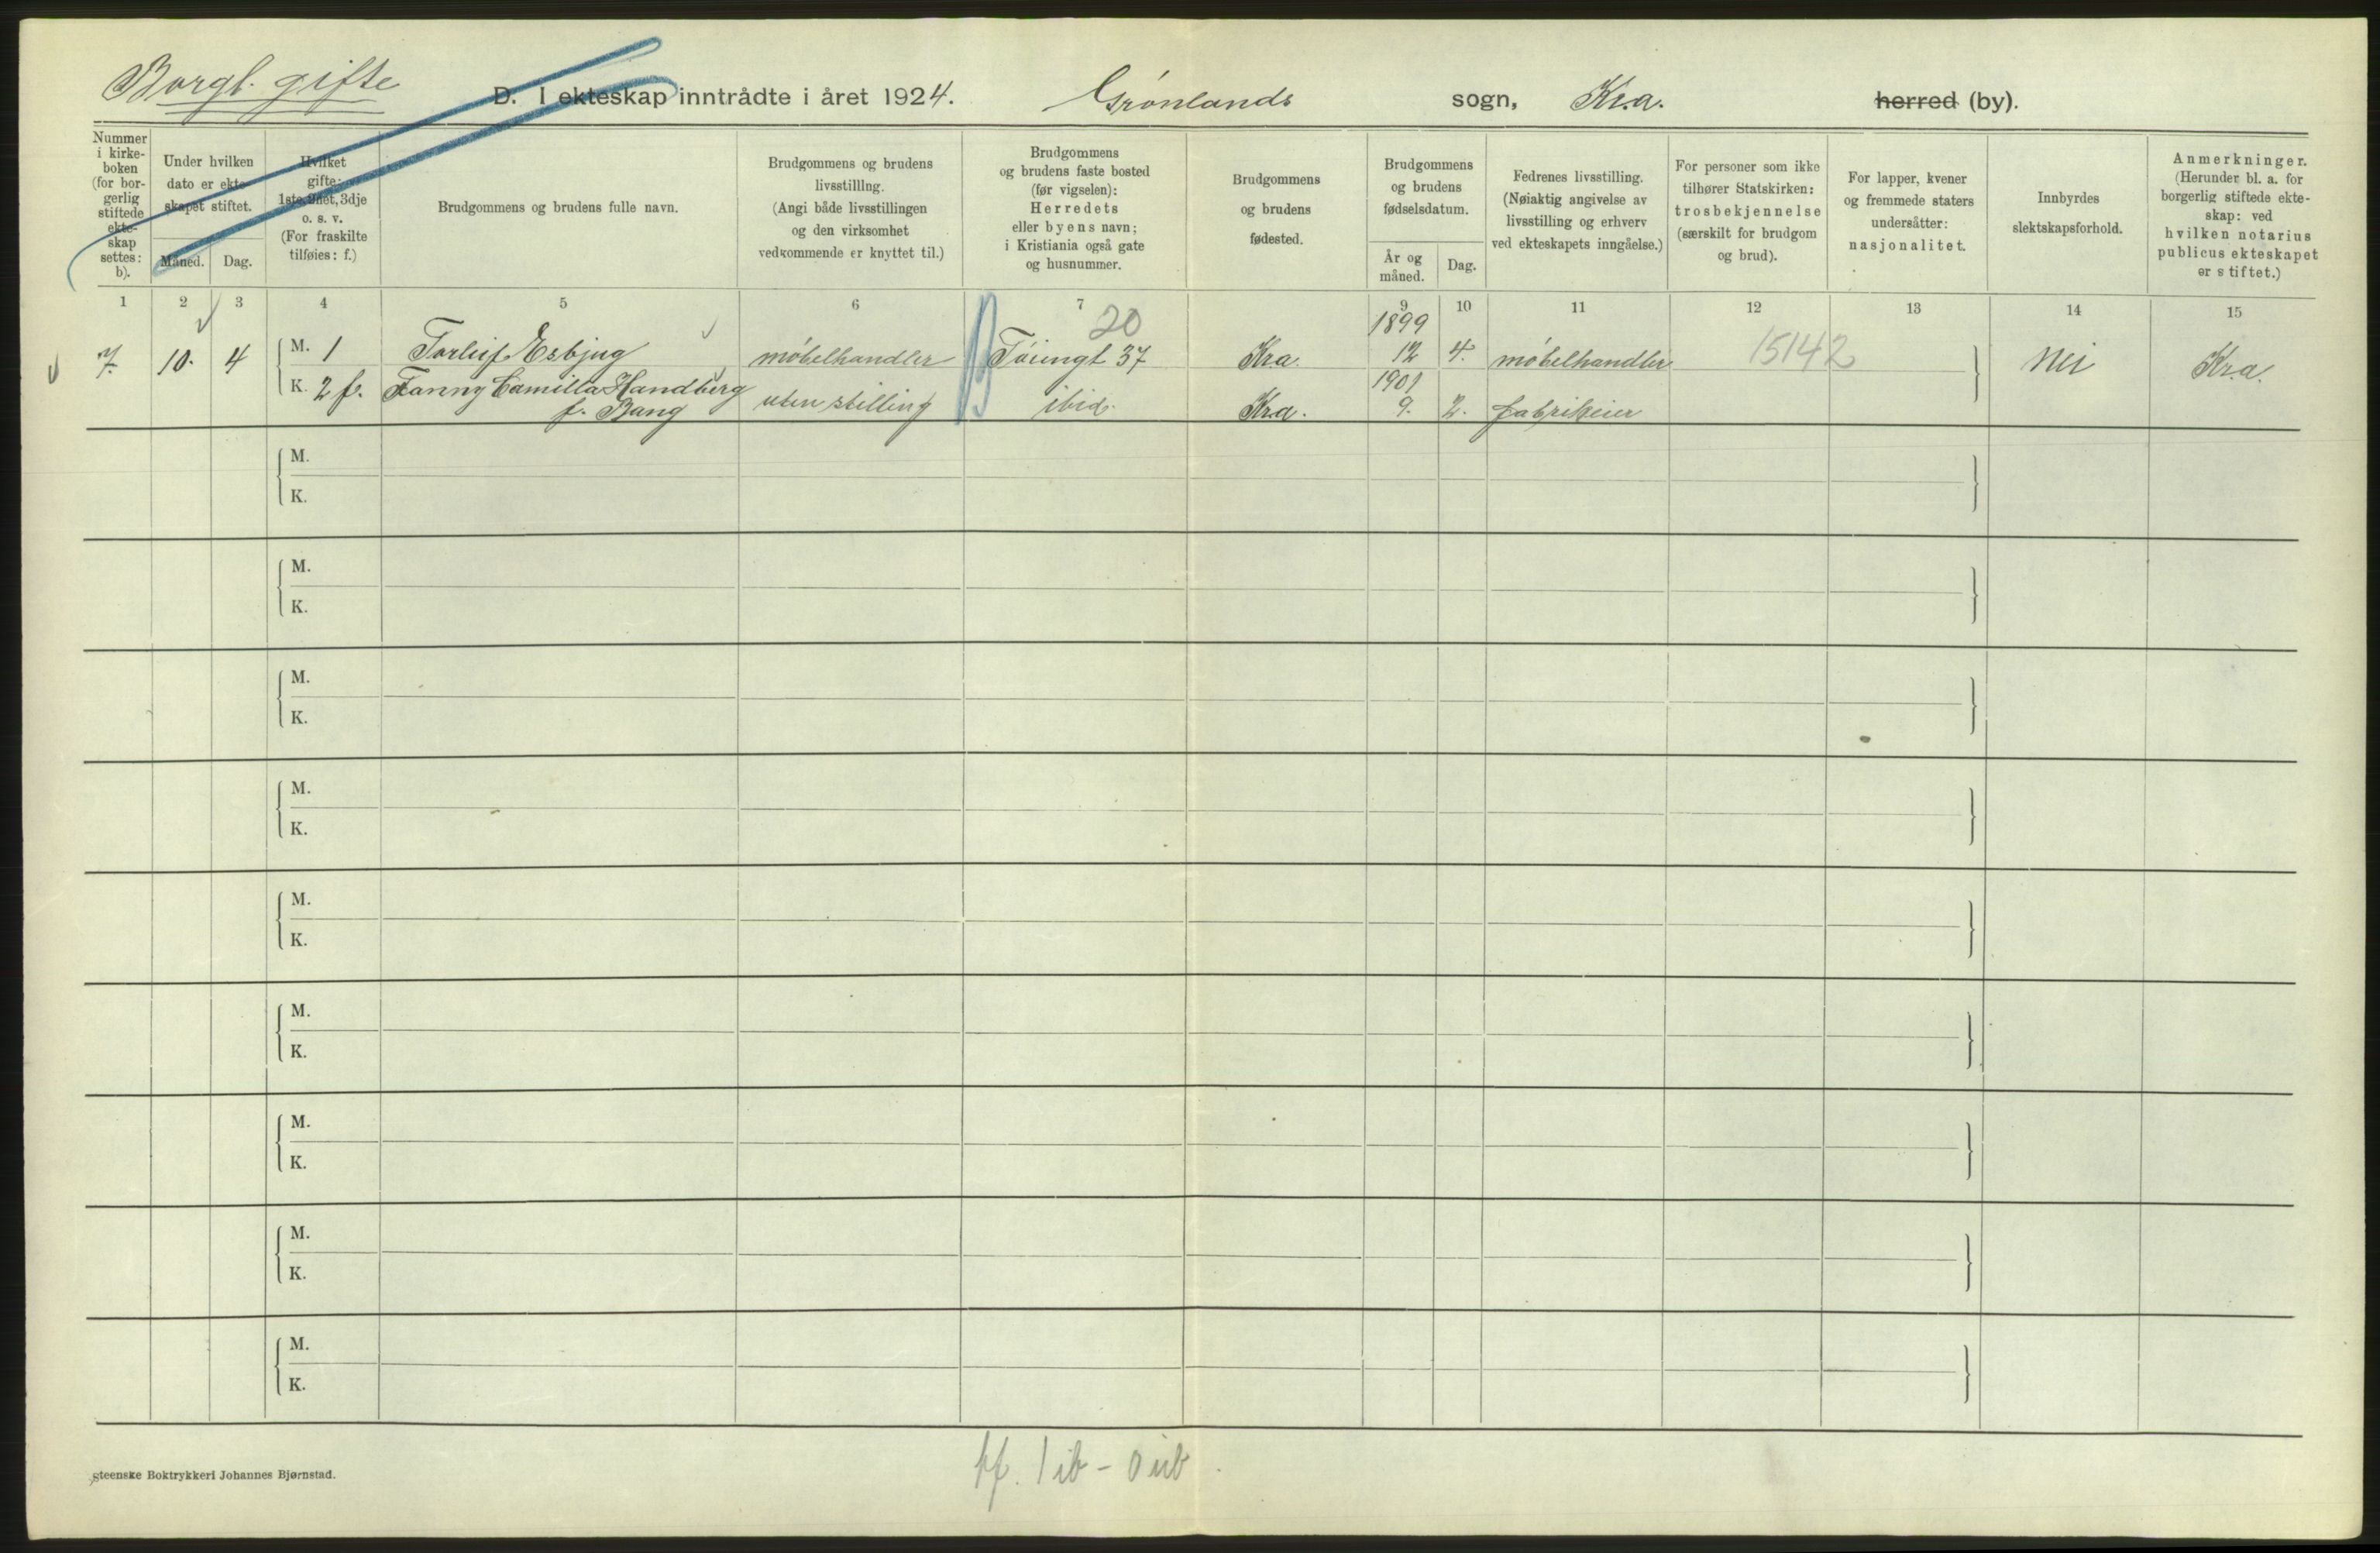 Borgl. gifte
D. I ekteskap inntrådte i året 1924. Grønlands sogn, Kr.a. herred (by).
Nummer i kirke- boken (for bor- gerlig stiftede ekte- skap settes: b).
Under hvilken dato er ekte- skapet stiftet.
Måned. Dag.
Hvilket gifte: 1ste, 2net, 3dje o. s. v. (For fraskilte tilføies: f.)
Brudgommens og brudens fulle navn.
Brudgommens og brudens livsstilling. (Angi både livsstillingen og den virksomhet vedkommende er knyttet til.)
Brudgommens og brudens faste bosted (før vigselen): Herredets eller byens navn; i Kristiania også gate og husnummer.
Brudgommens og brudens fødested.
Brudgommens og brudens fødselsdatum.
År og måned. Dag.
Fedrenes livsstilling. (Nøiaktig angivelse av livsstilling og erhverv ved ekteskapets inngåelse.)
For personer som ikke tilhører Statskirken: trosbekjennelse (særskilt for brudgom og brud).
For lapper, kvener og fremmede staters undersåtter: nasjonalitet.
Innbyrdes slektskapsforhold.
Anmerkninger. (Herunder bl. a. for borgerlig stiftede ekte- skap: ved hvilken notarius publicus ekteskapet er stiftet.)
1 2 3 4 5 6 7 8 9 10 11 12 13 14 15
20 1899
7. 10. 4 M. 1 Torleif Esbjug møbelhandler Tøiengt 37 Kra. 12 4. møbelhandler 15142 Nei Kr.a.
1901
K. 2 f. Fanny Camilla Handberg f. Bang uten stilling ibid. Kra. 9. 2. fabrikeier
M.
K.
M.
K.
M.
K.
M.
K.
M.
K.
M.
K.
M.
K.
M.
K.
M.
K.
Steenske Boktrykkeri Johannes Bjørnstad.
1 ib - 0 uib